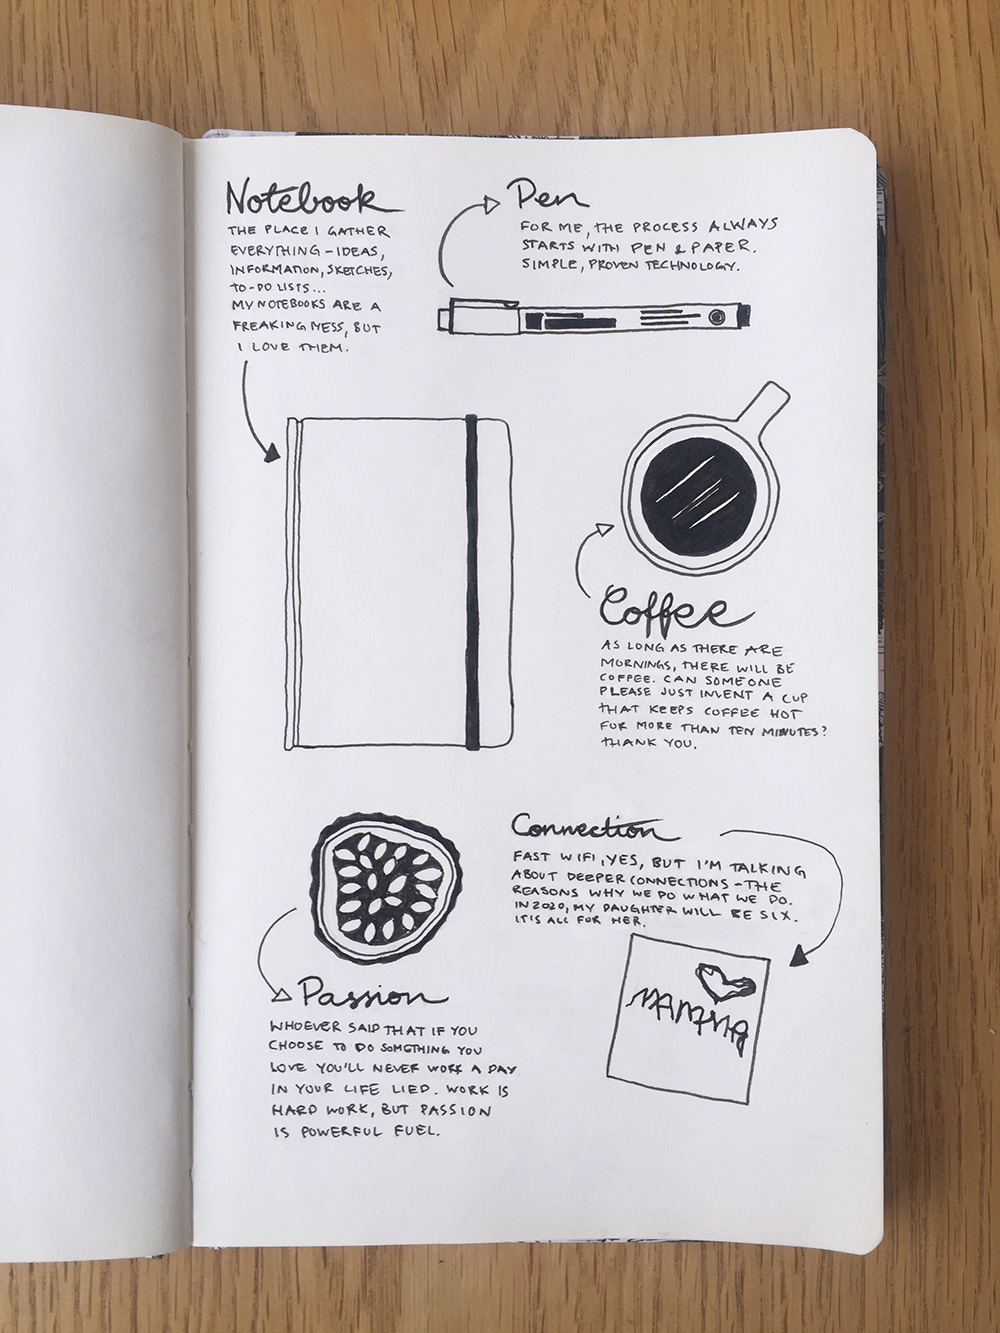 Notebook
THE PLACE I GATHER
EVERYTHING – IDEAS,
INFORMATION, SKETCHES,
TO-DO LISTS...
MY NOTEBOOKS ARE A
FREAKING MESS, BUT
I LOVE THEM.
Pen
FOR ME, THE PROCESS ALWAYS
STARTS WITH PEN & PAPER.
SIMPLE, PROVEN TECHNOLOGY.
Coffee
AS LONG AS THERE ARE
MORNINGS, THERE WILL BE
COFFEE. CAN SOMEONE
PLEASE JUST INVENT A CUP
THAT KEEPS COFFEE HOT
FOR MORE THAN TEN MINUTES?
THANK YOU.
Connection
FAST WIFI, YES, BUT I'M TALKING
ABOUT DEEPER CONNECTIONS – THE
REASONS WHY WE DO WHAT WE DO.
IN 2020, MY DAUGHTER WILL BE SIX.
IT'S ALL FOR HER.
MAMMA
Passion
WHOEVER SAID THAT IF YOU
CHOOSE TO DO SOMETHING YOU
LOVE YOU'LL NEVER WORK A DAY
IN YOUR LIFE LIED. WORK IS
HARD WORK, BUT PASSION
IS POWERFUL FUEL.